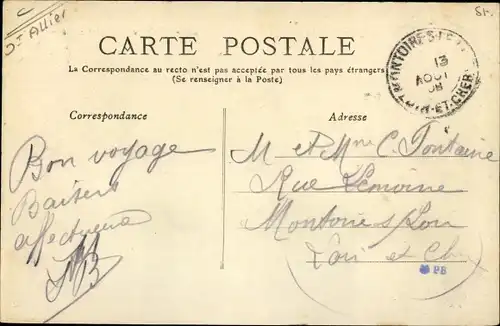 St Allier
CARTE POSTALE
La Correspondance au recto n'est pas acceptée par tous les pays étrangers
(Se renseigner à la Poste)
Correspondance
Adresse
MONTOIRE-S-LE
13
AOUT
08
LOIR-ET-CHER
Bon voyage
Baisers
affectueux
M et Mme C. Fontaine
Rue Lemoine
Montoire s/ Loir
Loir et Cher
PB